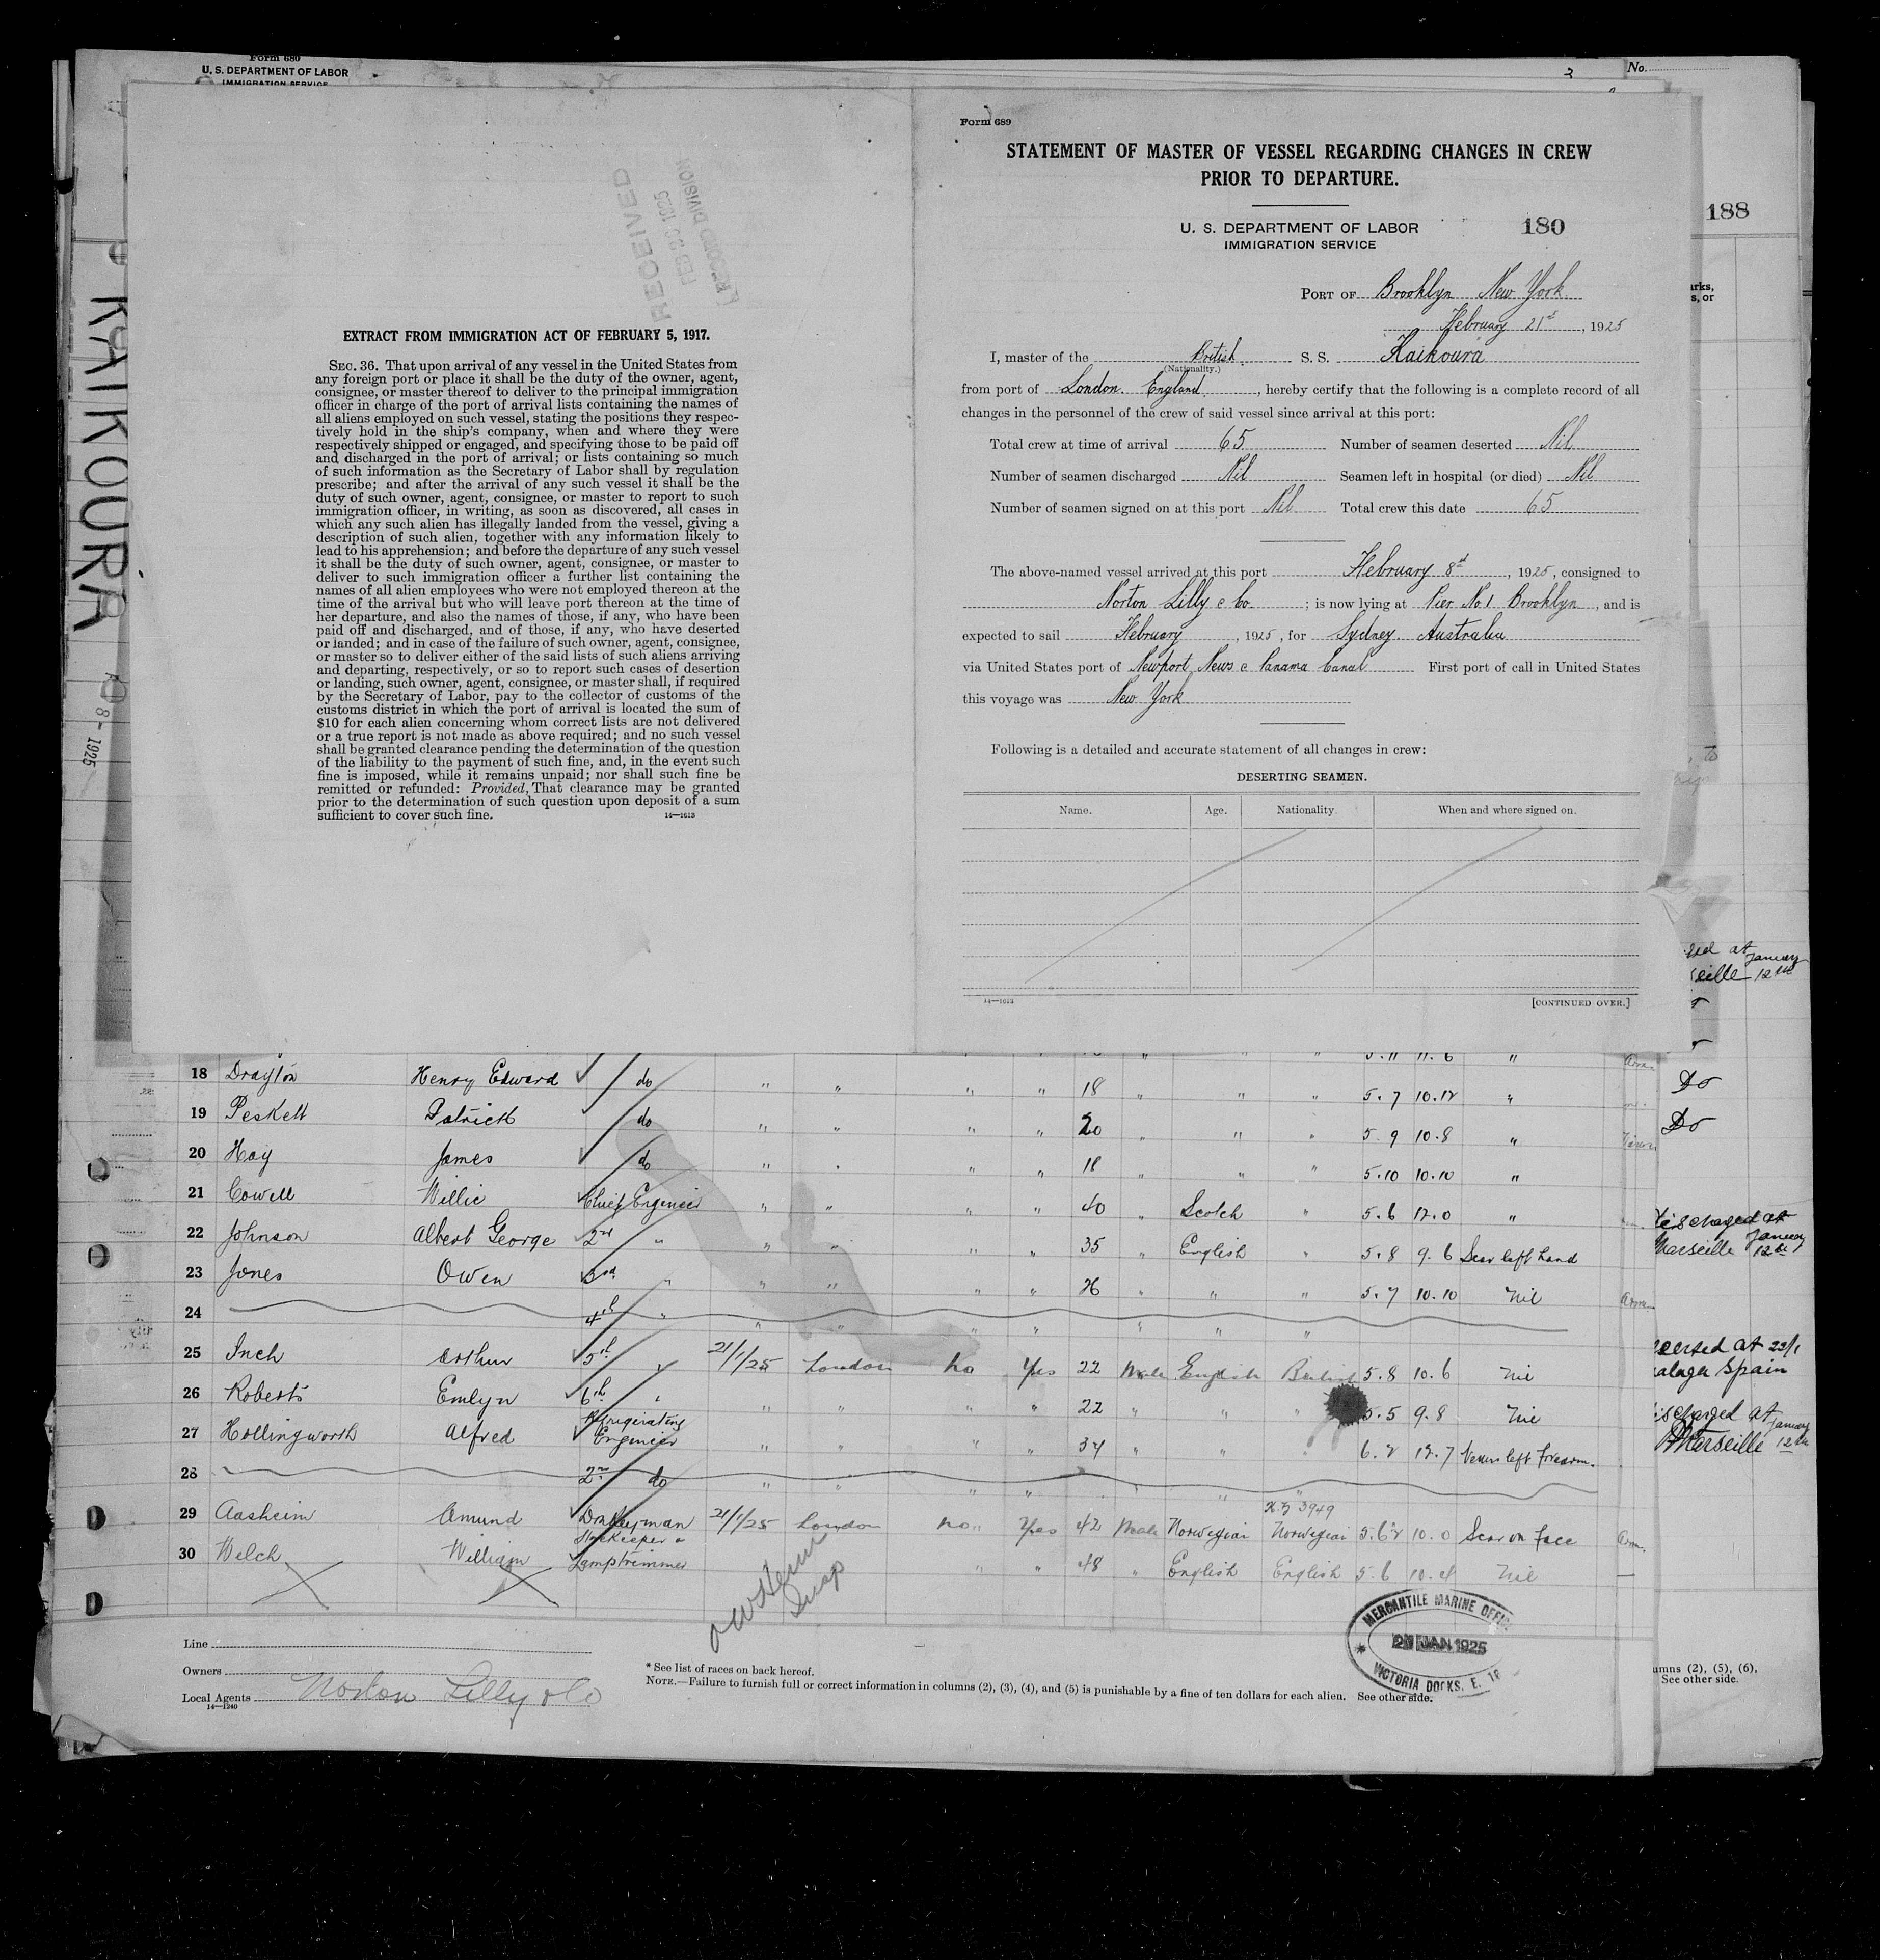 Form 680
U. S. DEPARTMENT OF LABOR
IMMIGRATION SERVICE
3
No.
188
KAIKOURA
8- 1925
RECEIVED
FEB 1925
RECORD DIVISION
EXTRACT FROM IMMIGRATION ACT OF FEBRUARY 5, 1917.
SEC. 36. That upon arrival of any vessel in the United States from
any foreign port or place it shall be the duty of the owner, agent,
consignee, or master thereof to deliver to the principal immigration
officer in charge of the port of arrival lists containing the names of
all aliens employed on such vessel, stating the positions they respec-
tively hold in the ship's company, when and where they were
respectively shipped or engaged, and specifying those to be paid off
and discharged in the port of arrival; or lists containing so much
of such information as the Secretary of Labor shall by regulation
prescribe; and after the arrival of any such vessel it shall be the
duty of such owner, agent, consignee, or master to report to such
immigration officer, in writing, as soon as discovered, all cases in
which any such alien has illegally landed from the vessel, giving a
description of such alien, together with any information likely to
lead to his apprehension; and before the departure of any such vessel
it shall be the duty of such owner, agent, consignee, or master to
deliver to such immigration officer a further list containing the
names of all alien employees who were not employed thereon at the
time of the arrival but who will leave port thereon at the time of
her departure, and also the names of those, if any, who have been
paid off and discharged, and of those, if any, who have deserted
or landed; and in case of the failure of such owner, agent, consignee,
or master so to deliver either of the said lists of such aliens arriving
and departing, respectively, or so to report such cases of desertion
or landing, such owner, agent, consignee, or master shall, if required
by the Secretary of Labor, pay to the collector of customs of the
customs district in which the port of arrival is located the sum of
$10 for each alien concerning whom correct lists are not delivered
or a true report is not made as above required; and no such vessel
shall be granted clearance pending the determination of the question
of the liability to the payment of such fine, and, in the event such
fine is imposed, while it remains unpaid; nor shall such fine be
remitted or refunded: Provided, That clearance may be granted
prior to the determination of such question upon deposit of a sum
sufficient to cover such fine.
14—1613
Form 689
STATEMENT OF MASTER OF VESSEL REGARDING CHANGES IN CREW
PRIOR TO DEPARTURE.
U. S. DEPARTMENT OF LABOR
IMMIGRATION SERVICE
180
PORT OF Brooklyn New York
February 21st, 1925
I, master of the British S. S. Kaikoura
(Nationality.)
from port of London. England, hereby certify that the following is a complete record of all
changes in the personnel of the crew of said vessel since arrival at this port:
Total crew at time of arrival 65 Number of seamen deserted Nil
Number of seamen discharged Nil Seamen left in hospital (or died) Nil
Number of seamen signed on at this port Nil Total crew this date 65
The above-named vessel arrived at this port February 8th, 1925, consigned to
Norton Lilly & Co. ; is now lying at Pier No. 1 Brooklyn, and is
expected to sail February, 1925, for Sydney Australia
via United States port of Newport News & Panama Canal First port of call in United States
this voyage was New York
Following is a detailed and accurate statement of all changes in crew:
DESERTING SEAMEN.
Name. Age. Nationality. When and where signed on.
14—1613
[CONTINUED OVER.]
18 Drayton Henry Edward do " " " " 18 " " " 5.7 10.12 " Do
19 Peskett Patrick do " " " " 20 " " " 5.9 10.8 " Do
20 Hay James do " " " " 18 " " " 5.10 10.10 "
21 Cowell Willie Chief Engineer " " " " 40 " Scotch " 5.6 12.0 "
22 Johnson Albert George 2nd " " " " " 35 " English " 5.8 9.6 Scar left hand
23 Jones Owen 3rd " " " " " 26 " " " 5.7 10.10 Nil
24 4th " " " " " " " "
25 Inch Arthur 5th " 21/1/25 London No Yes 22 Male English British 5.8 10.6 Nil
26 Roberts Emlyn 6th " " " " " 22 " " " 5.5 9.8 Nil
27 Hollingworth Alfred Refrigerating Engineer " " " " 34 " " " 6.2 12.7 left Forearm.
28 2nd do " " " " " "
29 Aasheim Amund Donkeyman 21/1/25 London no Yes 42 Male Norwegian Norwegian 5.6½ 10.0 Scar on face
30 Welch William Storekeeper & Lamptrimmer " " 48 " English English 5.6 10.4 Nil
at January
12th
Discharged at
Marseille January
12th
at 22/1
Spain
Discharged at
Marseille January 12th
Insp
Line
Owners
Local Agents Norton Lilly & Co
14—1240
* See list of races on back hereof.
NOTE.—Failure to furnish full or correct information in columns (2), (3), (4), and (5) is punishable by a fine of ten dollars for each alien. See other side.
MERCANTILE MARINE OFFICE
JAN 1925
VICTORIA DOCKS, E. 16
umns (2), (5), (6),
See other side.